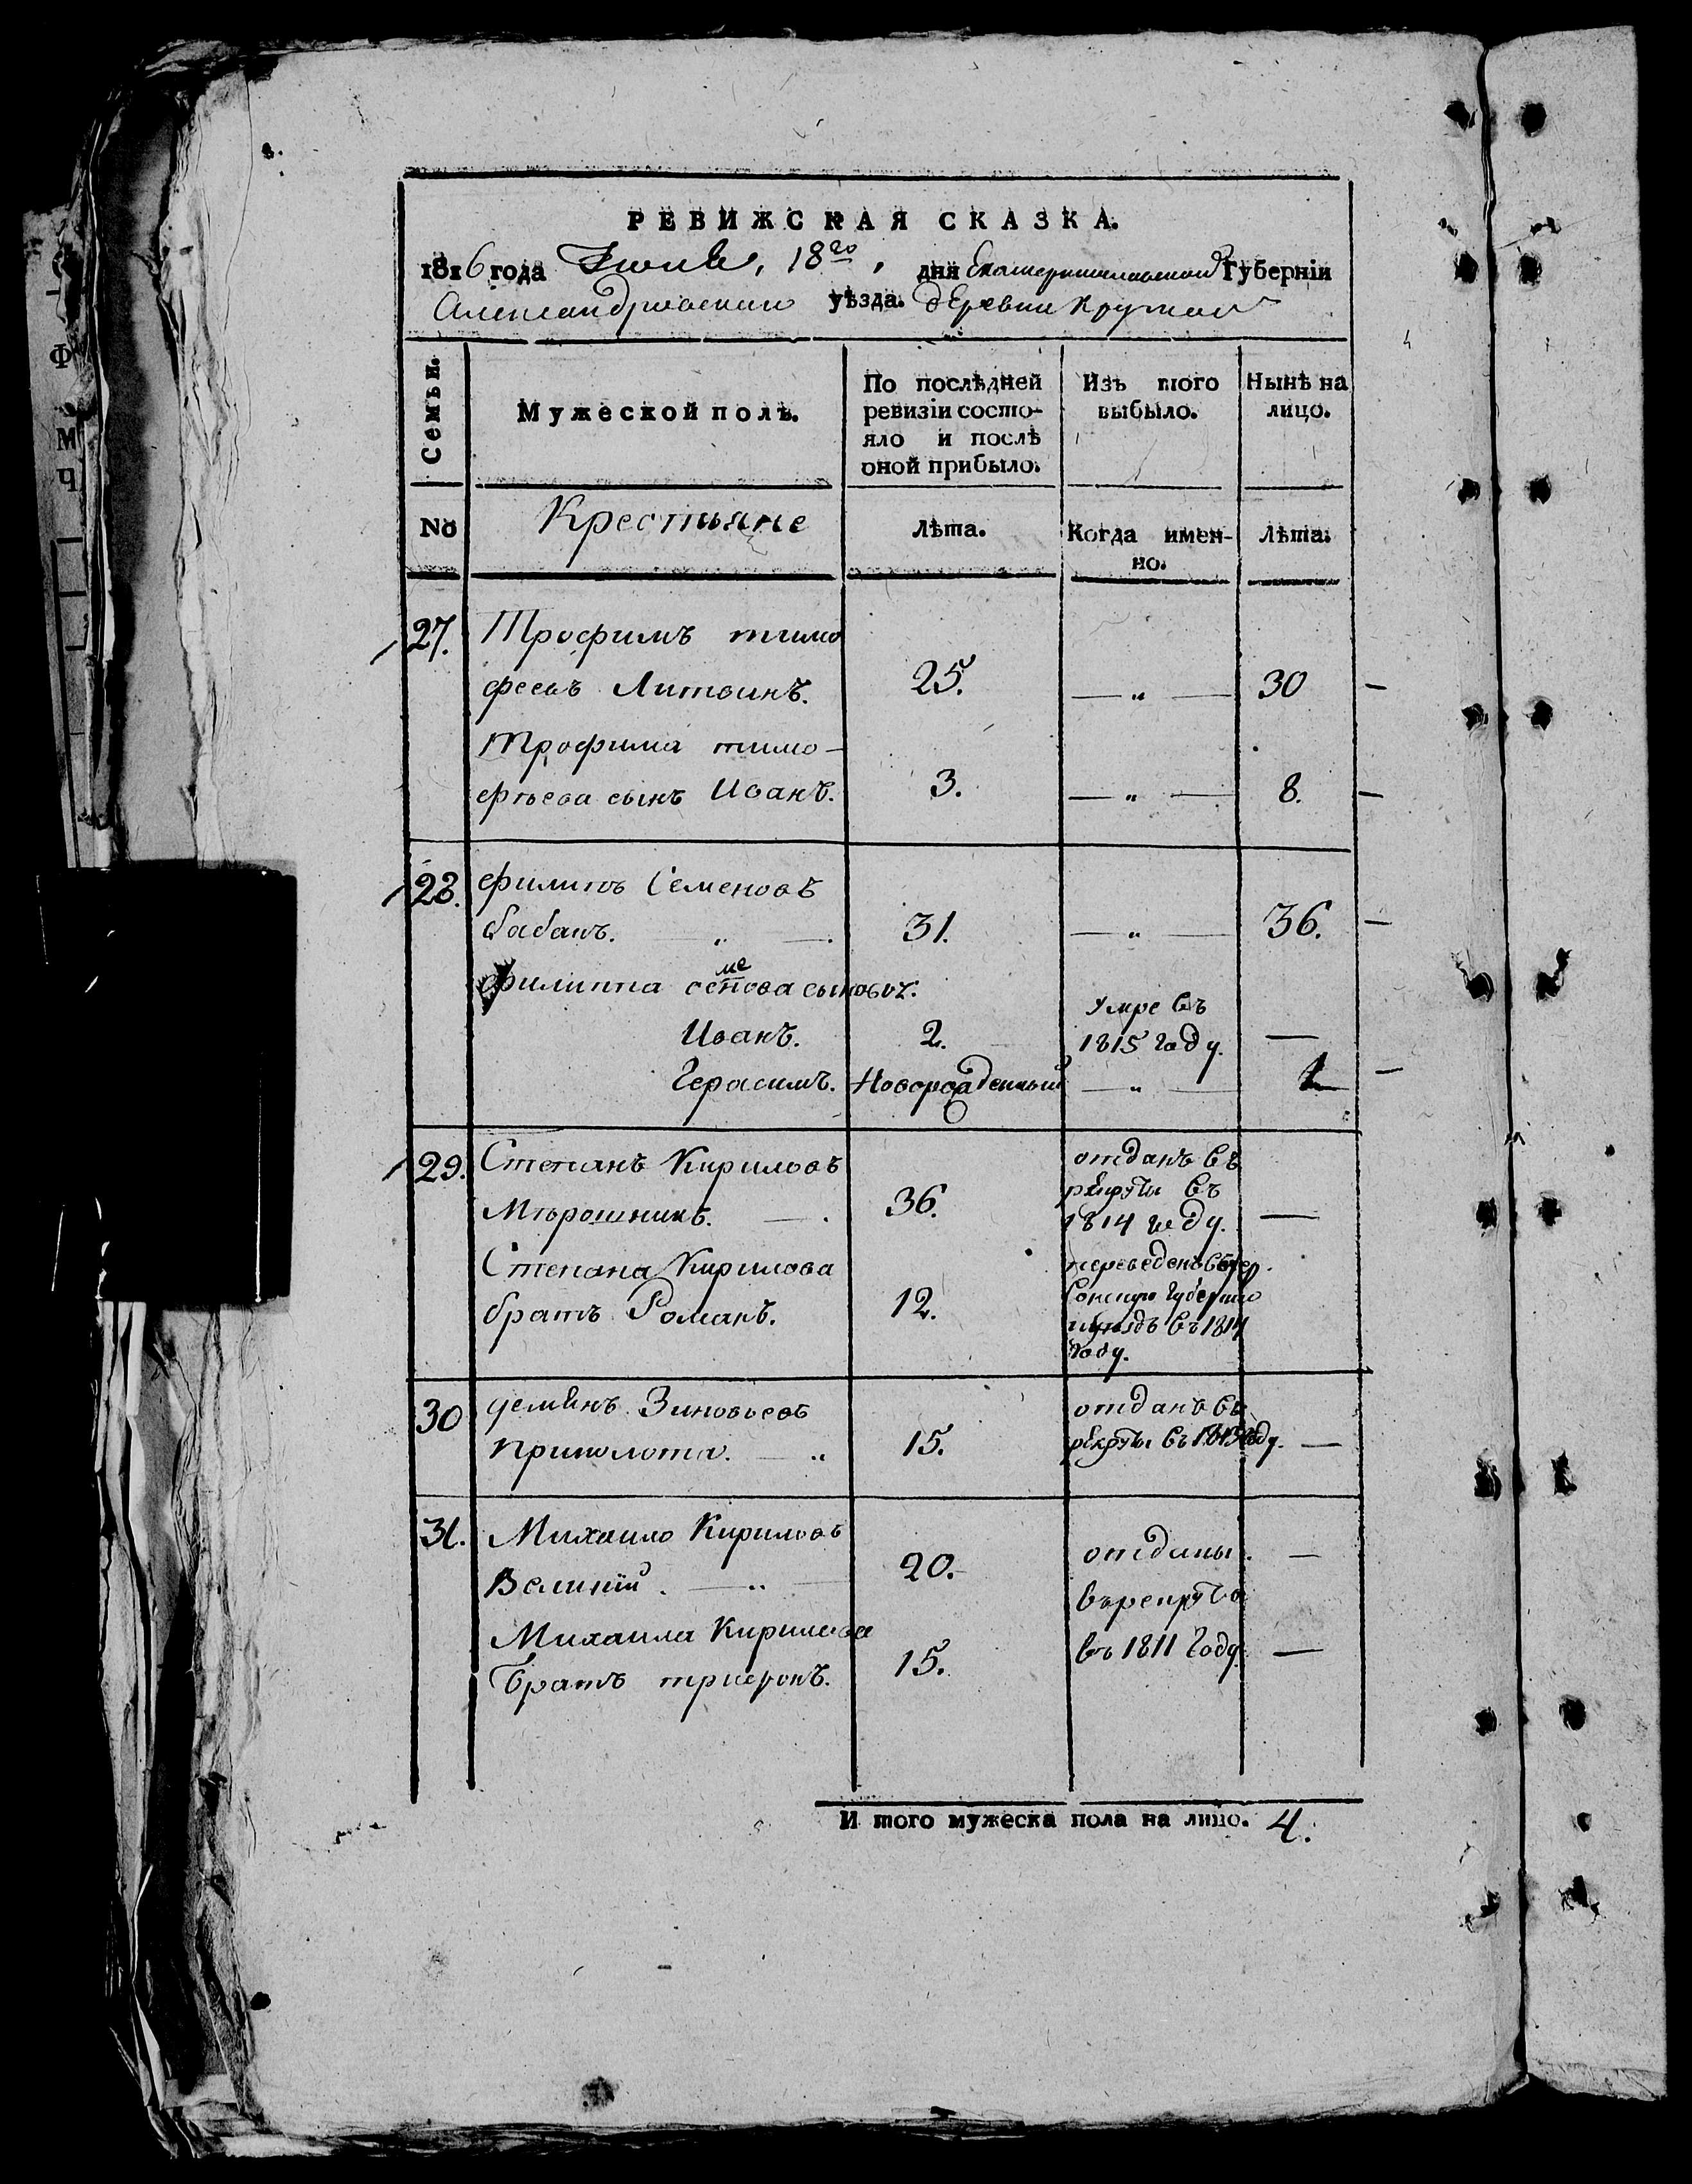 РЕВИЖСКАЯ СКАЗКА.
1816 года Июня, 18го, дня Екатеринославской Губерніи
Александровскаго уѣзда. деревни
Семьи.
Мужеской полъ.
По послѣдней
ревизіи состо-
яло и послѣ
оной прибыло.
Изъ того
выбыло.
Нынѣ на
лицо.
No
Крестьяне
Лѣта.
Когда имен-
но.
Лѣта.
27. Трофимъ тимо
феевъ Литвинъ. 25. — „ — 30 —
Трофима тимо-
фѣева сынъ Иванъ. 3. — „ — 8. —
28. филипъ Семеновъ
бабакъ. — „ —. 31. — „ — 36. —
филиппа семенова сыновья.
Умре въ
Иванъ. 2. 1815 году. —
Герасимъ. Новорожденный — „ — 1 —
29. Степанъ Кириловъ отданъ въ
рекруты въ
Мѣрошникъ. — . 36. 1814 году. —
Степана Кирилова переведенъ въ Хер.
братъ Романъ. 12. сонскую Губернію
уѣздъ въ 1814
году.
30 Демянъ Зиновьевъ отданъ въ
Приколота. — „ 15. рекруты въ 1813 году. —
31. Михаило Кириловъ
Великій. — „ — 20. отданы. —
въ рекруты
Михаила Кирилова
въ 1811 Году. —
братъ трифонъ. 15.
И того мужеска пола на лицо. 4.
Ф
М
Ч